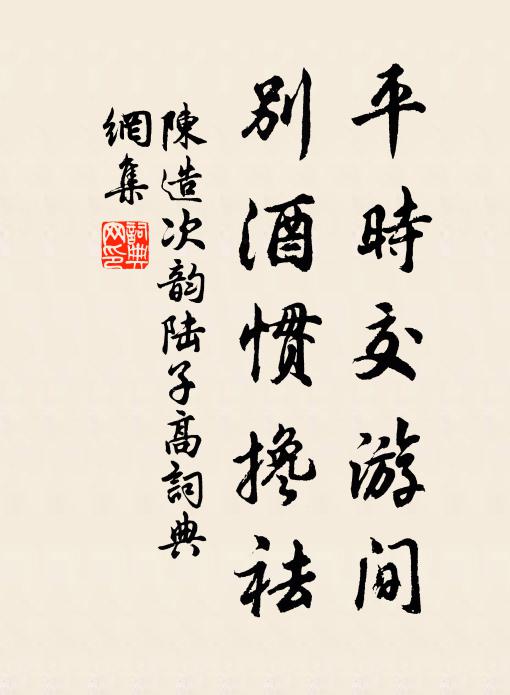 平時交游间
别酒慣搀袪
陳造次韵陆子高詞典
網集
詞典网印